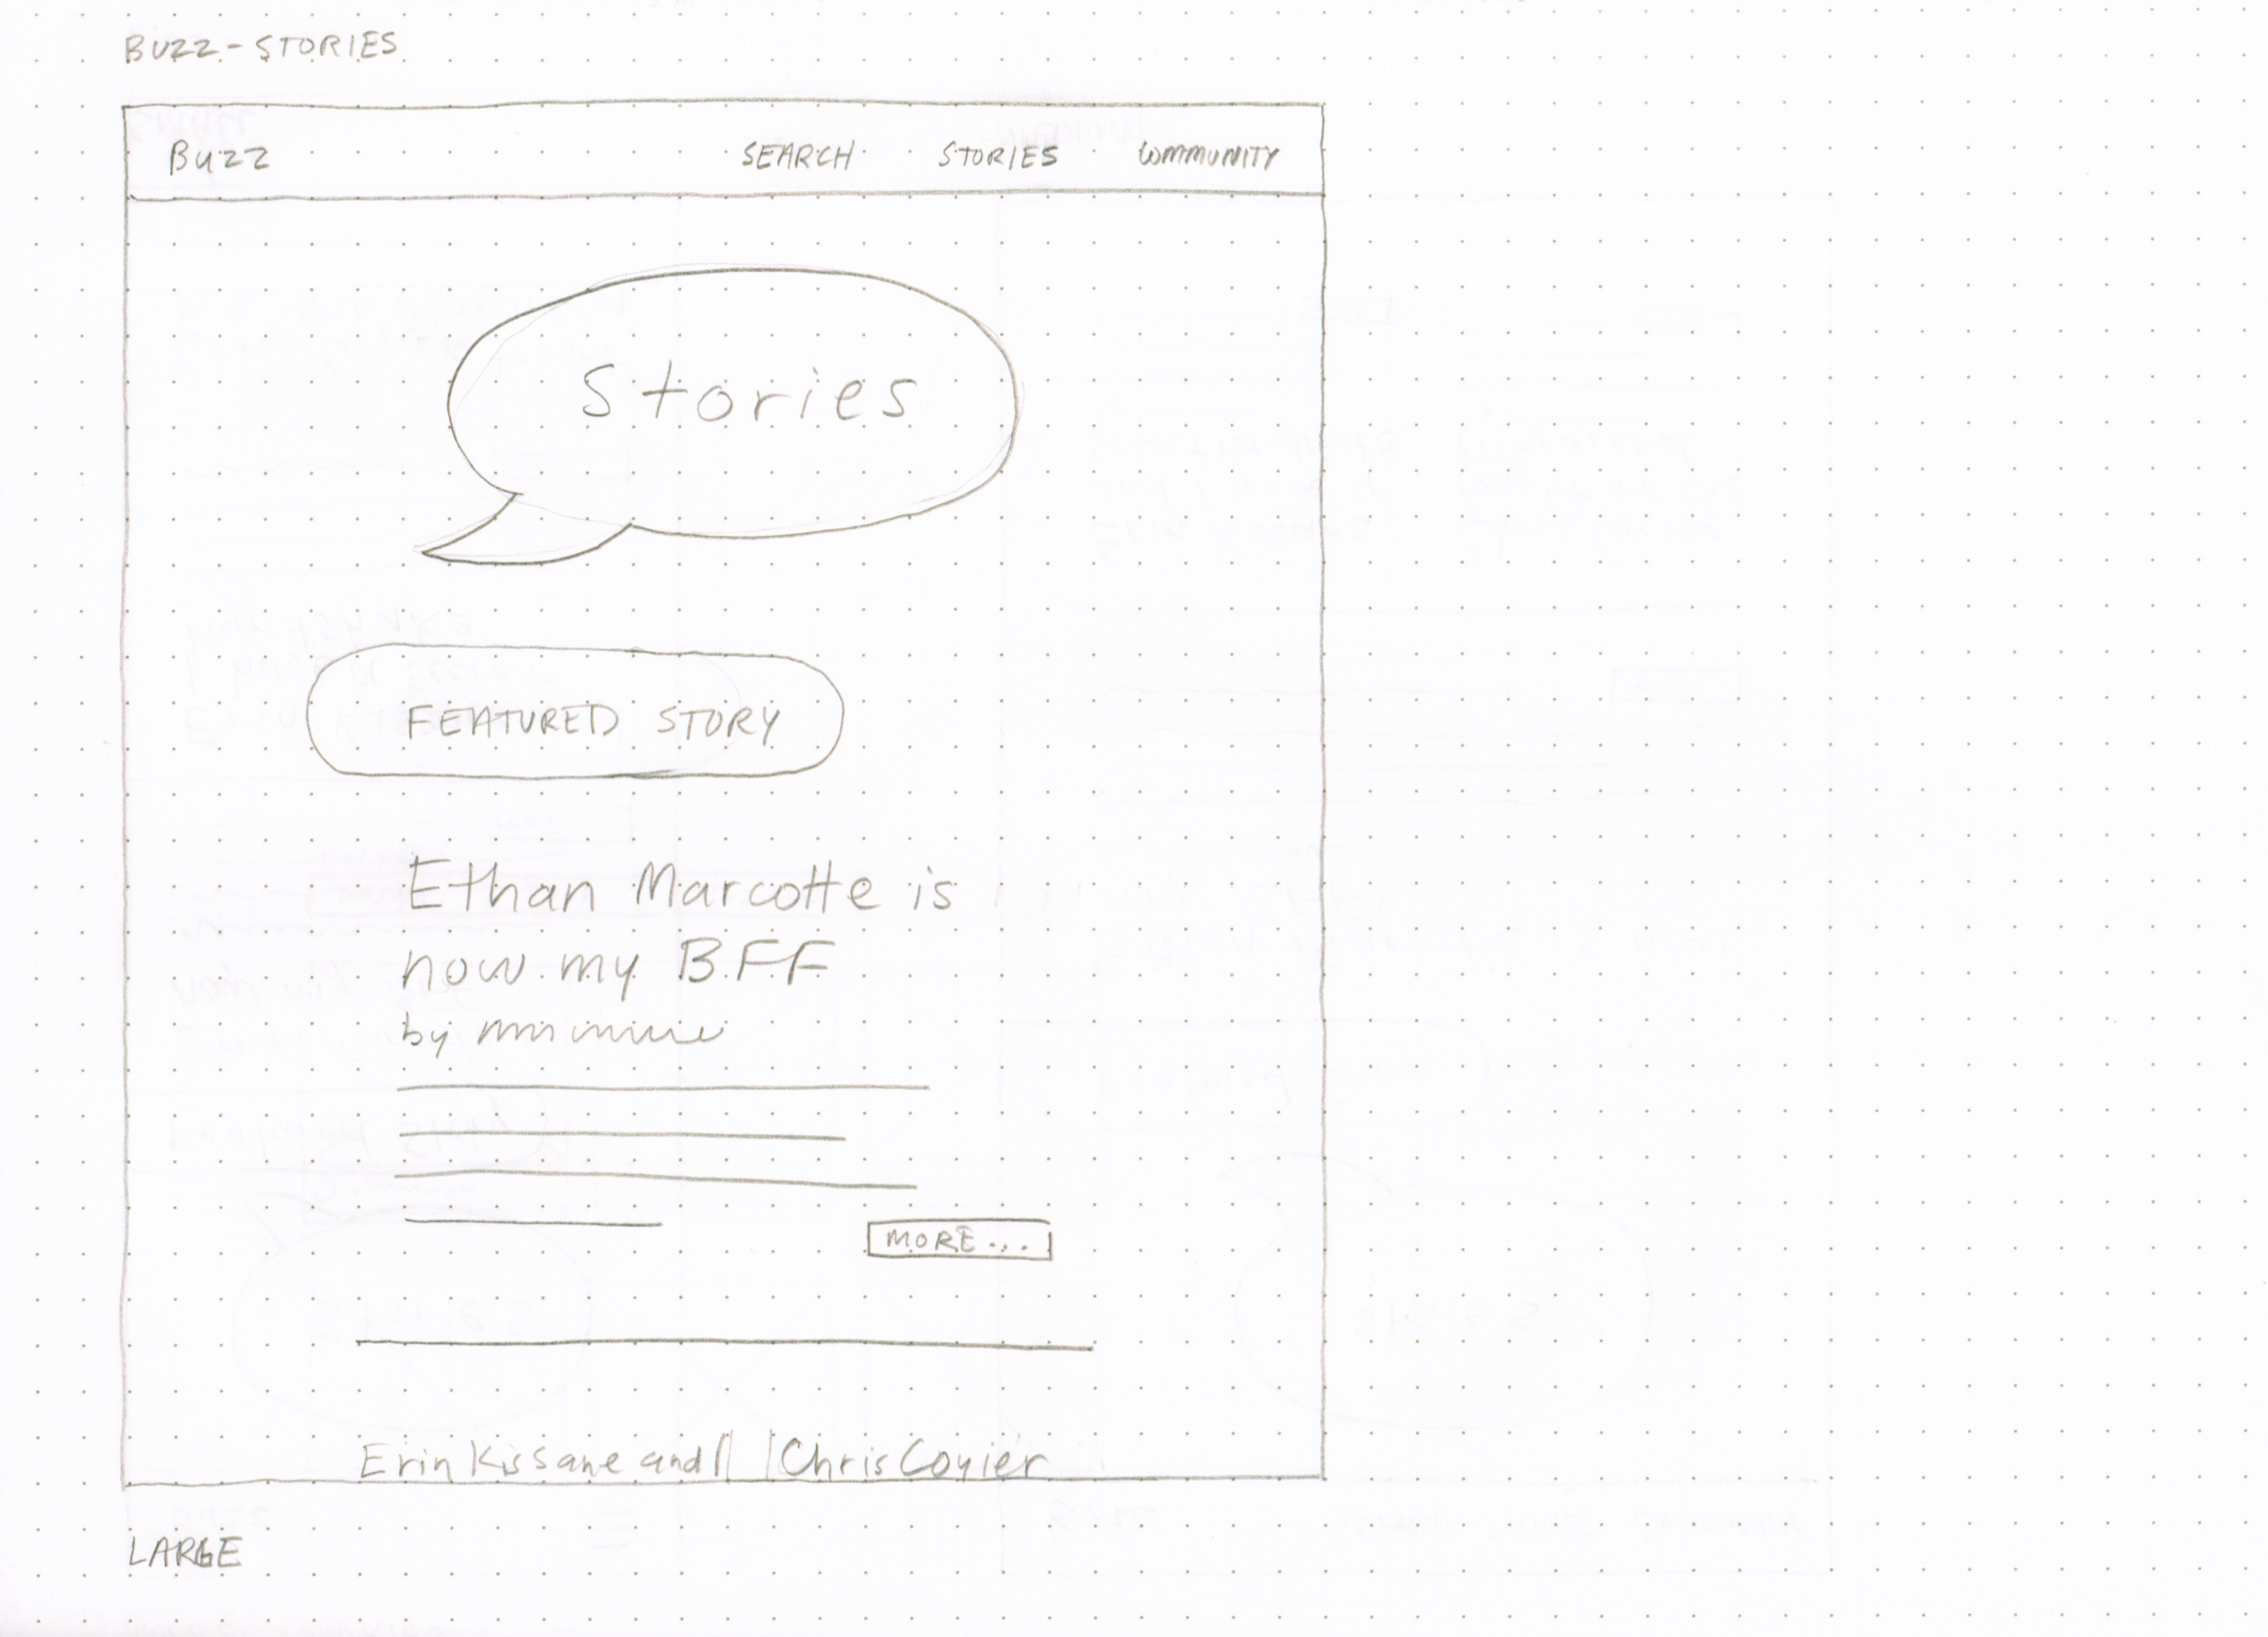 BUZZ - STORIES
Buzz SEARCH STORIES COMMUNITY
Stories
FEATURED STORY
Ethan Marcotte is
now my BFF
by
MORE...
Erin Kissane and Chris Coyier
LARGE